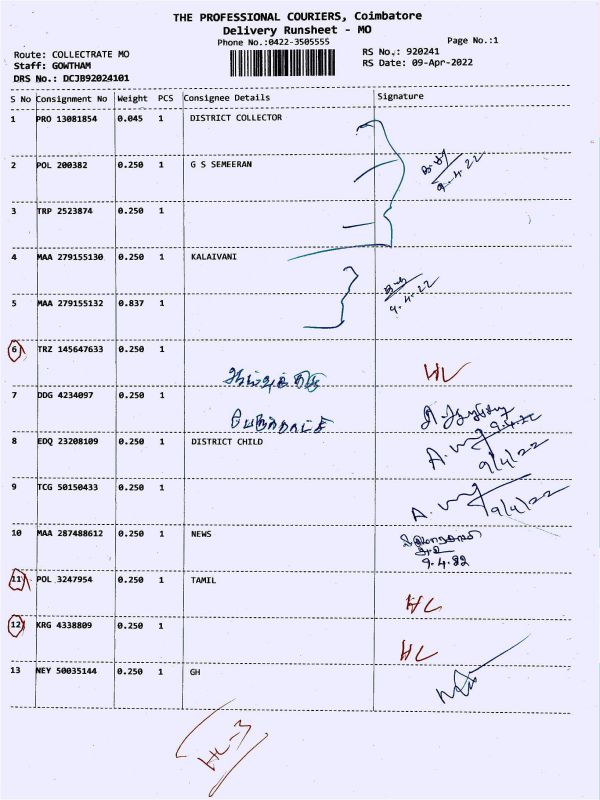 THE PROFESSIONAL COURIERS, Coimbatore
Delivery Runsheet - MO
Phone No.:0422-3505555
Page No.:1
Route: COLLECTRATE MO
RS No.: 920241
Staff: GOWTHAM
RS Date: 09-Apr-2022
DRS No.: DCJB92024101
S No Consignment No Weight PCS Consignee Details Signature
1 PRO 13081854 0.045 1 DISTRICT COLLECTOR
2 POL 200382 0.250 1 G S SEMEERAN
9.4.22
3 TRP 2523874 0.250 1
4 MAA 279155130 0.250 1 KALAIVANI
5 MAA 279155132 0.837 1
9.4.22
6 TRZ 145647633 0.250 1
HL
7 DDG 4234097 0.250 1
9.4.22
8 EDQ 23208109 0.250 1 DISTRICT CHILD
9/4/22
9 TCG 50150433 0.250 1
9/4/22
10 MAA 287488612 0.250 1 NEWS
9.4.22
11 POL 3247954 0.250 1 TAMIL
HL
12 KRG 4338809 0.250 1
HL
13 NEY 50035144 0.250 1 GH
HL-3